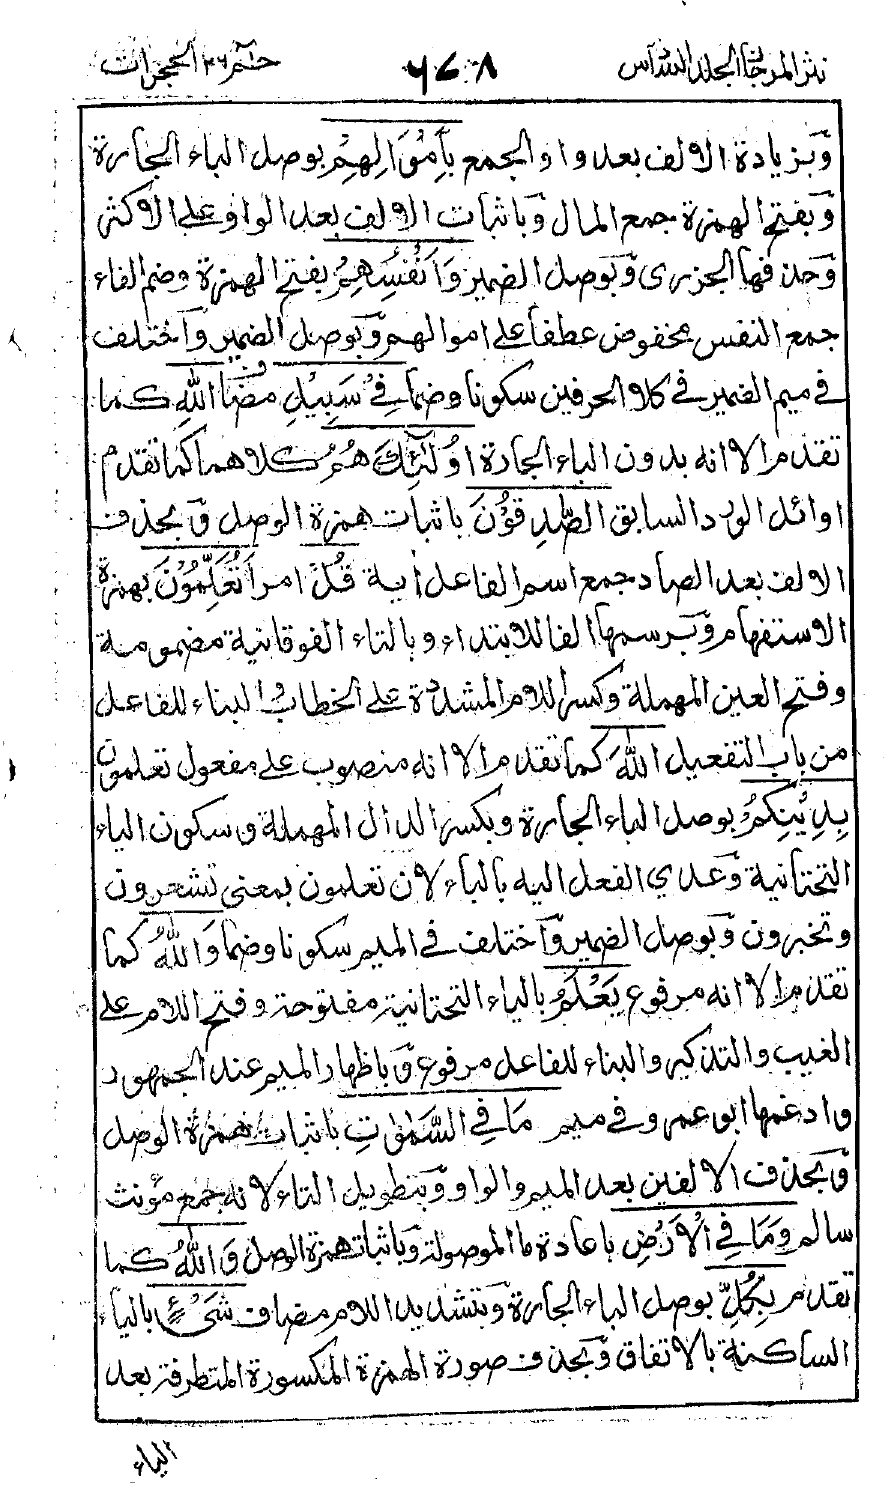 نثر المرجان المجلد السادس ٦٧٨ حٰمٓ ٢٦ الحجرات
وَبزيادة الالف بعد واو الجمع بِأَمْوَالِهِمْ بوصل الباء الجارة
وَبفتح الهمزة جمع المال وَباثبات الالف بعد الواو على الاكثر
وَحذفها الجزرى وَبوصل الضمير وَأَنْفُسِهِمْ بفتح الهمزة وضم الفاء
جمع النفس مخفوض عطفاً على اموالهم وَبوصل الضمير وَاختلف
فى ميم الضمير فى كلا الحرفين سكونا وضما فِىْ سَبِيْلِ مضاف اللّٰهِ كما
تقدم الا انه بدون الباء الجارة اُولٰٓئِكَ هُمُ كلاهما كما تقدم
اوائل الورد السابق الصّٰدِقُوْنَ باثبات همزة الوصل وَبحذف
الالف بعد الصاد جمع اسم الفاعل أية قُلْ امر اَتُعَلِّمُوْنَ بهمزة
الاستفهام وَبرسمها الفا للابتداء وبالتاء الفوقانية مضمومة
وفتح العين المهملة وَكسر اللام المشددة على الخطاب والبناء للفاعل
من باب التفعيل اللّٰهَ كما تقدم الا انه منصوب على مفعول تعلمون
بِدِيْنِكُمْ بوصل الباء الجارة وبكسر الدال المهملة وسكون الياء
التحتانية وَعدي الفعل اليه بالباء لان تعلمون بمعنى تشعرون
وتخبرون وَبوصل الضمير وَاختلف فى الميم سكونا وضما وَاللّٰهُ كما
تقدم الا انه مرفوع يَعْلَمُ بالياء التحتانية مفتوحة وفتح اللام على
الغيب والتذكير والبناء للفاعل مرفوع وَباظهار الميم عند الجمهور
وادغمها ابو عمرو فى ميم مَا فِى السَّمٰوٰتِ باثبات همزة الوصل
وَبحذف الالفين بعد الميم والواو وَبتطويل التاء لانه جمع مؤنث
سالم وَمَا فِى الْاَرْضِ باعادة ما الموصولة وَباثبات همزة الوصل وَاللّٰهُ كما
تقدم بِكُلِّ بوصل الباء الجارة وَبتشديد اللام مضاف شَىْءٍ بالياء
الساكنة بالاتفاق وَبحذف صورة الهمزة المكسورة المتطرفة بعد
الياء